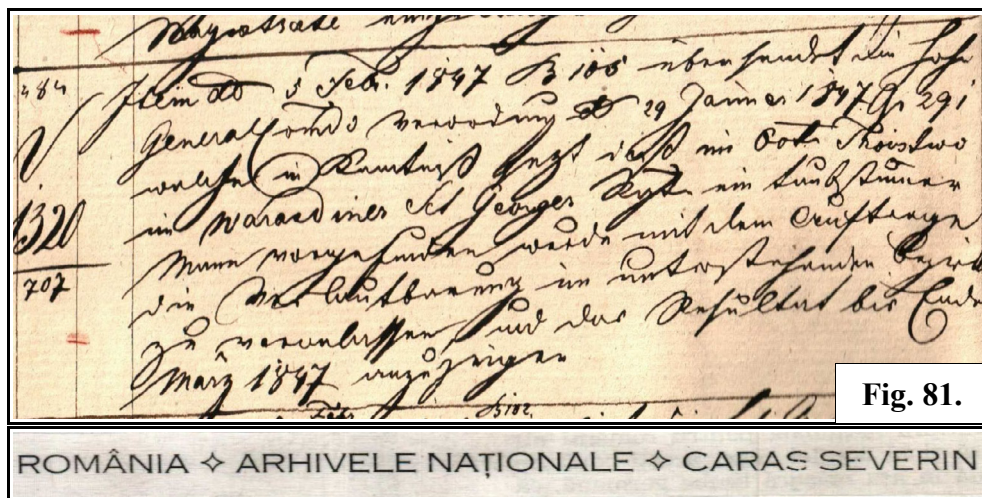 Magistrate
484 Item dd 5 Feb. 1847 № 105 übersendet ein hohe
General Comdo Verordnung dd 29 Jänner 1847 G 291
welche in Kentniß sezt daß im Orte
1320 im Warasdiner Sct Georger Regte ein taubstumer
Mann vorgefunden wurde mit dem Auftrage
707 die Verlautbarung im unterstehenden Bezirk
zu veranlassen und das Resultat bis Ende
März 1847 anzuzeigen
Fig. 81.
ROMÂNIA ✧ ARHIVELE NAȚIONALE ✧ CARAȘ SEVERIN